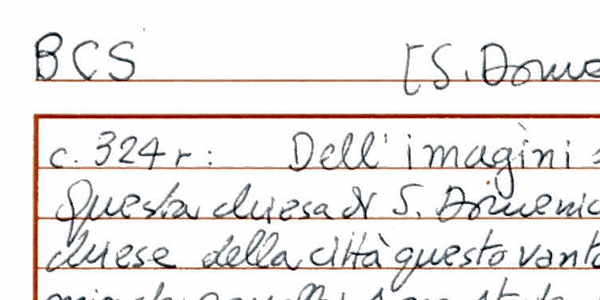 BCS [S. Dome
c. 324r: Dell' imagini
Questa chiesa di S. Domenic
chiese della città questo vanto